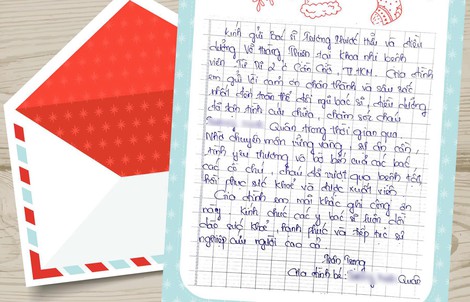 Kính gửi bác sĩ Trương Phước Hữu và điều
dưỡng Võ Hồng Thiên tại khoa nhi bệnh
viện Từ Dũ 2 ở Cần Giờ, TP.HCM. Gia đình
em gửi lời cảm ơn chân thành và sâu sắc
nhất đến toàn thể đội ngũ bác sĩ, điều dưỡng
đã tận tình cứu chữa, chăm sóc cháu
Quân trong thời gian qua.
Nhờ chuyên môn vững vàng, sự ân cần,
tình yêu thương và bền bỉ của các bác
các cô chú, cháu đã vượt qua bệnh tật
hồi phục sức khoẻ và được xuất viện
Gia đình em mãi khắc ghi công ơn
này. Kính chúc các y bác sĩ luôn dồi
dào sức khoẻ, hạnh phúc và tiếp tục sự
nghiệp cứu người cao cả.
Trân Trọng
Gia đình bé: Quân